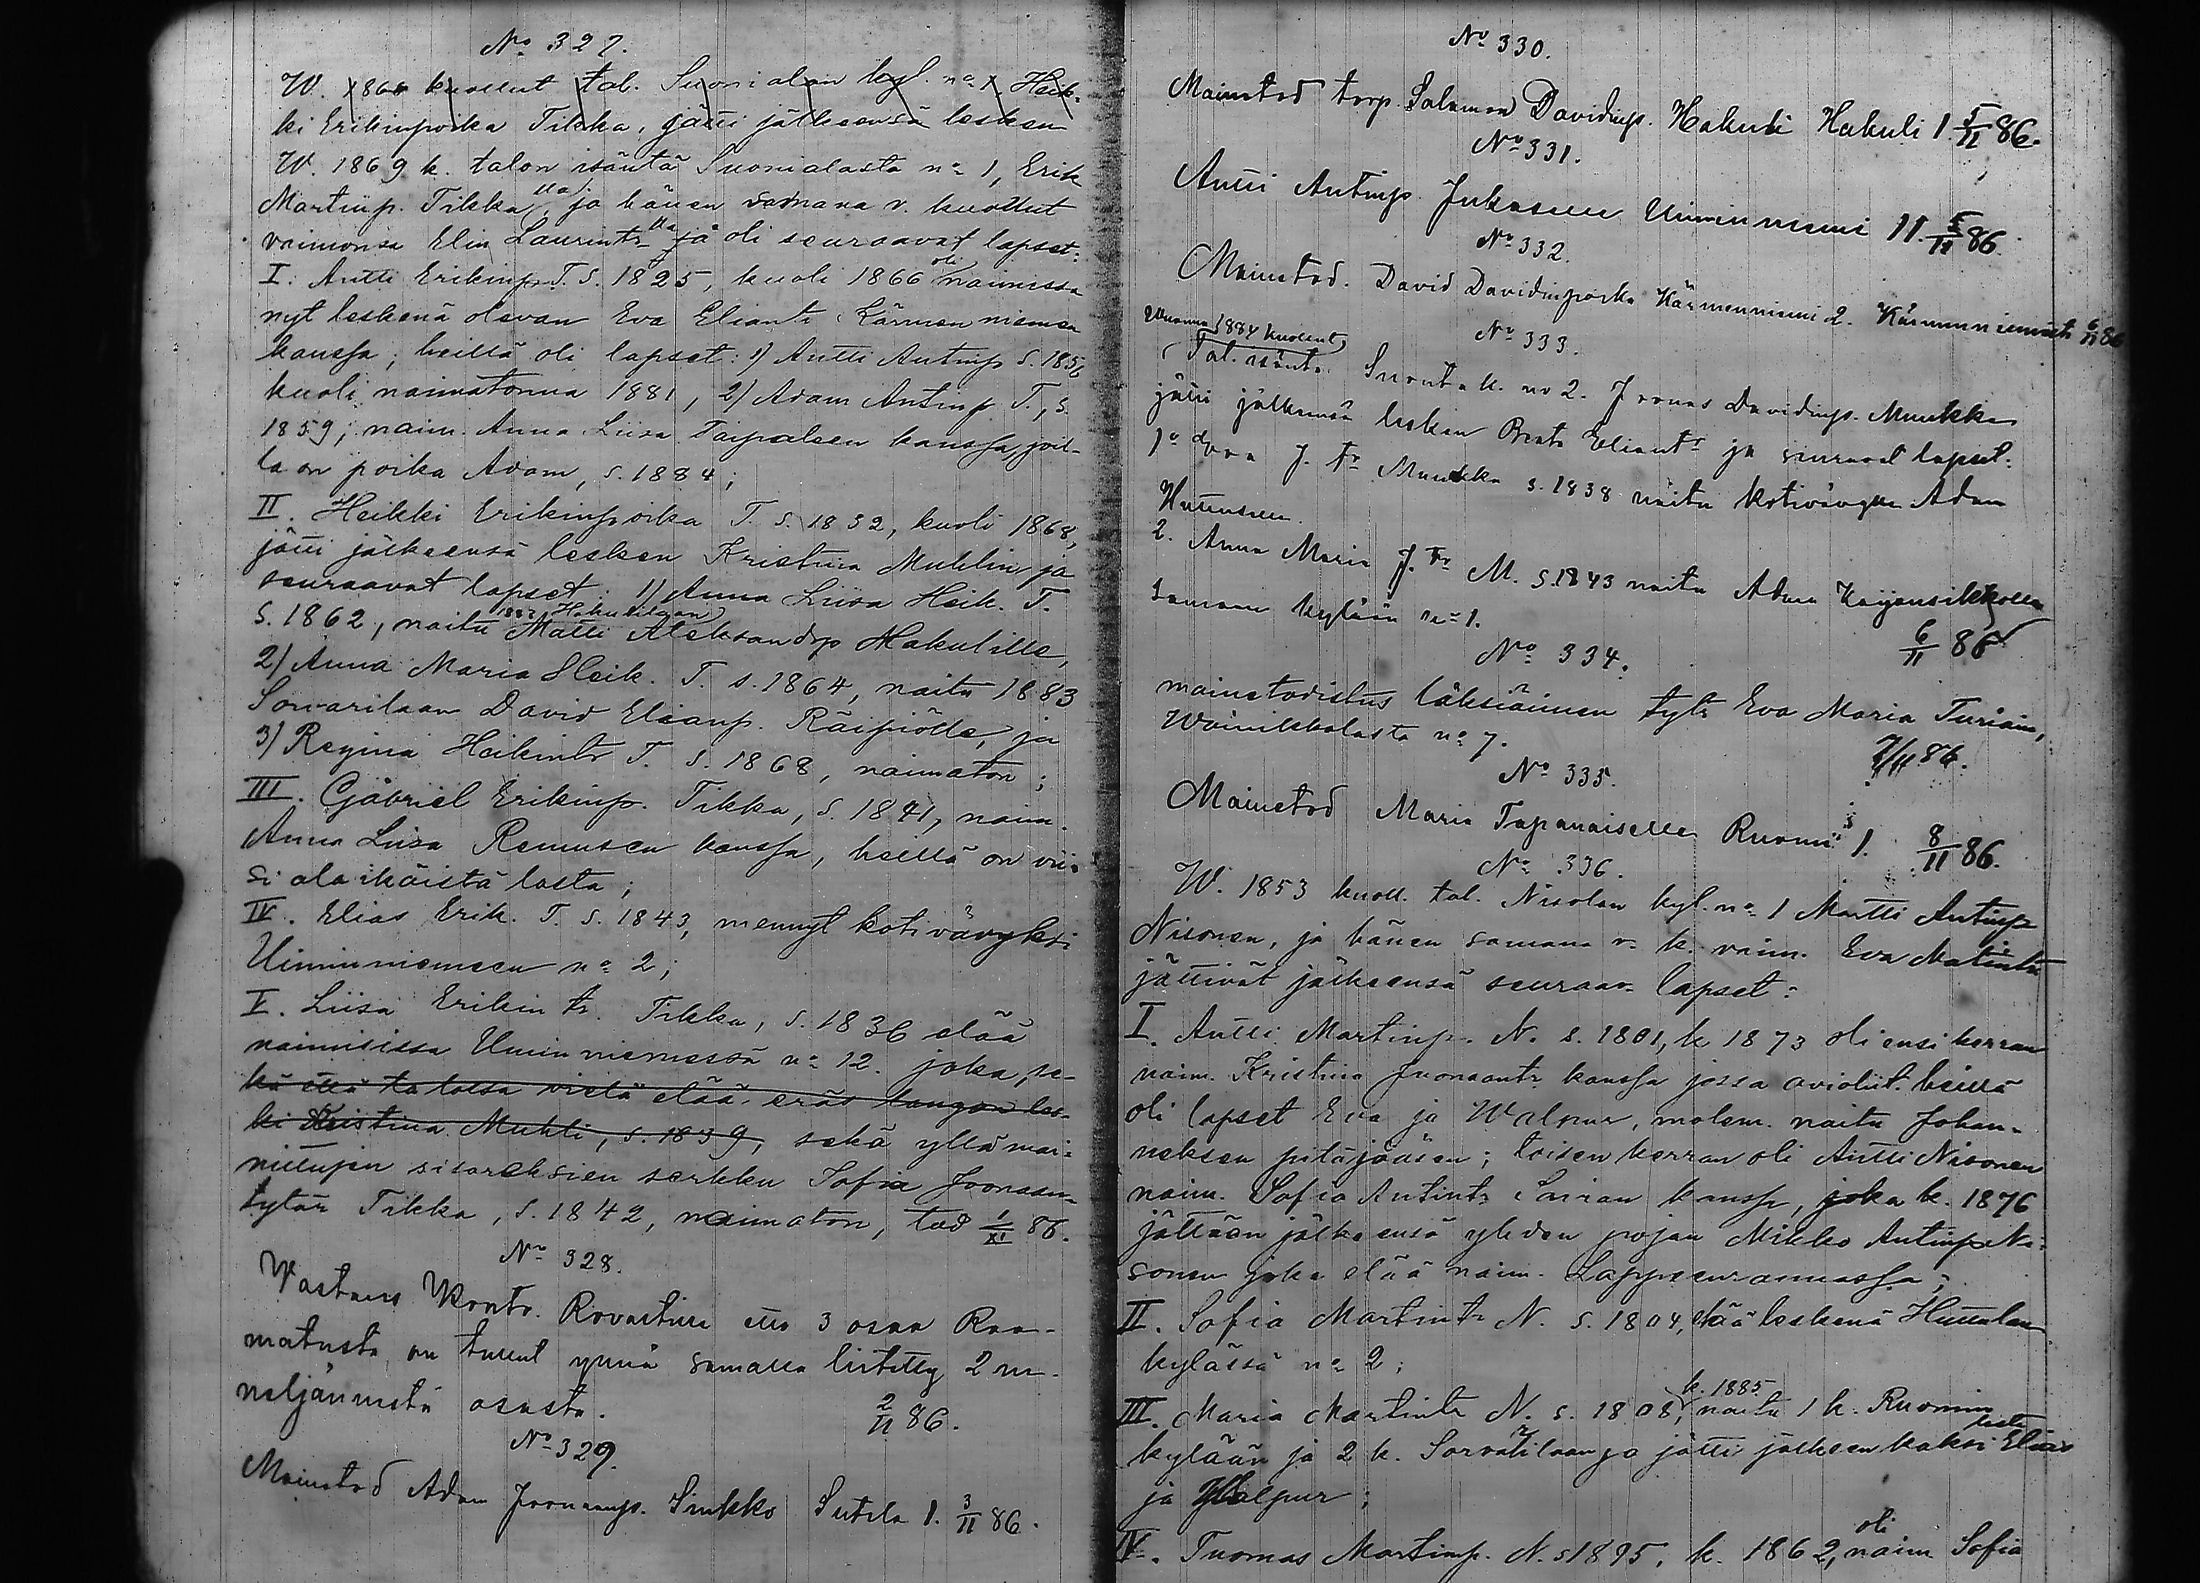 No 327.
W. 1866 kuollut tal. Suonialan kyl. no 1. Heik-
ki Erikinpoika Tikka, jätti jälkeensä lesken
W. 1869 k. talon isäntä Suonialasta no 1, Erik
Martinp. Tikka lla ja hänen samana v. kuollut
vaimonsa Elin Laurintr lla jä oli seuraavat lapset:
I. Antti Erikinp. T. s. 1825, kuoli 1866 oli naimissa
nyt leskenä olevan Eva Eliantr Kärmenniemen
kanssa; heillä oli lapset: 1) Antti Antinp s. 1856
kuoli naimatonna 1881, 2) Adam Antinp T., s.
1859; naim. Anna Liisa Taipaleen kanssa, joil-
la on poika Adam, s. 1884;
II. Heikki Erikinpoika T. s. 1832, kuoli 1868,
jätti jälkeensä lesken Kristina Muhlin ja
seuraavat lapset: 1) Anna Liisa Heik. T.
s. 1862, naitu Hakulilaan Matti Aleksandrp Hakulille,
2) Anna Maria Heik. T. s. 1864, naitu 1883
Sorvarilaan David Elianp. Räipiölle, ja
3) Regina Heikintr T. s. 1868, naimaton;
III. Gabriel Erikinp. Tikka, s. 1841, naim.
Anna Liisa Remusen kanssa, heillä on vii-
si alaikäistä lasta;
IV. Elias Erik. T. s. 1843, mennyt kotivävyksi
Uiminniemeen no 2;
V. Liisa Erikintr. Tikka, s. 1836 elää
naimisissa Uiminniemessä no 12. joka, se-
kä että talossa vielä elää eräs langon les-
ki Kristina Muhli, s. 1839, sekä yllä mai-
nittujen sisareksien serkku Sofia Joonaan-
tytär Tikka, s. 1842, naimaton, tod 1/XI 86.
No 328.
Vastaus Kontr. Rovastille että 3 osaa Raa-
matusta on tullut ynnä samalla liitetty 2 m
neljännestä osasta. 2/11 86.
No 329.
Mainetod Adam Joonaanp. Sinkko Sutela 1. 3/11 86.
No 330.
Mainetod torp. Salomon Davidinp. Hakuli Hakuli 1 5/11 86.
No 331.
Antti Antinp. Jukaselle Uiminniemi 11. 5/11 86.
No 332.
Mainetod. David Davidinpoika Kärmenniemi 2. Kärmenniemestä 6/11 86
No 333.
Vuonna 1884 kuollut
Tal. isäntä Suonta k. no 2. Joonas Davidinp. Munkka
jätti jälkeensä lesken Beata Eliantr ja seuraavat lapset:
1o Eva J. tr Munkka s. 1838 naitu kotivävylle Adam
Huttuselle.
2. Anna Maria J. tr M. s. 1843 naitu Adam Kaijansikkolle
samaan kylään no 1. 6/11 86
No 334.
mainetodistus läksiäinen tytr Eva Maria Turiain,
Wainikkalasta no 7. 7/11 86.
No 335.
Mainetod Maria Tapanaiselle Ruomi 1. 8/11 86.
No 336.
W. 1853 kuoll. tal. Nisolan kyl. no 1 Martti Antinp
Nisonen, ja hänen samana v. k. vaim. Eva Matintr
jättivät jälkeensä seuraav. lapset:
I. Antti Martinp. N. s. 1801, k 1873 oli ensi kerran
naim. Kristina Juonaantr kanssa jossa avioliit. heillä
oli lapset Eva ja Walpur, molem. naitu Johan-
neksen pitäjääsen; toisen kerran oli Antti Nisonen
naim. Sofia Antintr Sairan kanssa, joka k. 1876
jättäen jälkeensä yhden pojan Mikko Antinp Ni-
sonen joka elää naim. Lappeenrannassa;
II. Sofia Martintr N. s. 1804, elää leskenä Huttulan
kylässä no 2;
III. Maria Martintr N. s. 1808, k. 1885 naitu 1 k. Ruomin
kylään ja 2 k. Sorvarilaan ja jätti jälkeen kaksi lasta Elias
ja Walpur;
IV. Tuomas Martinp. N. s 1895, k. 1862, oli naim Sofia